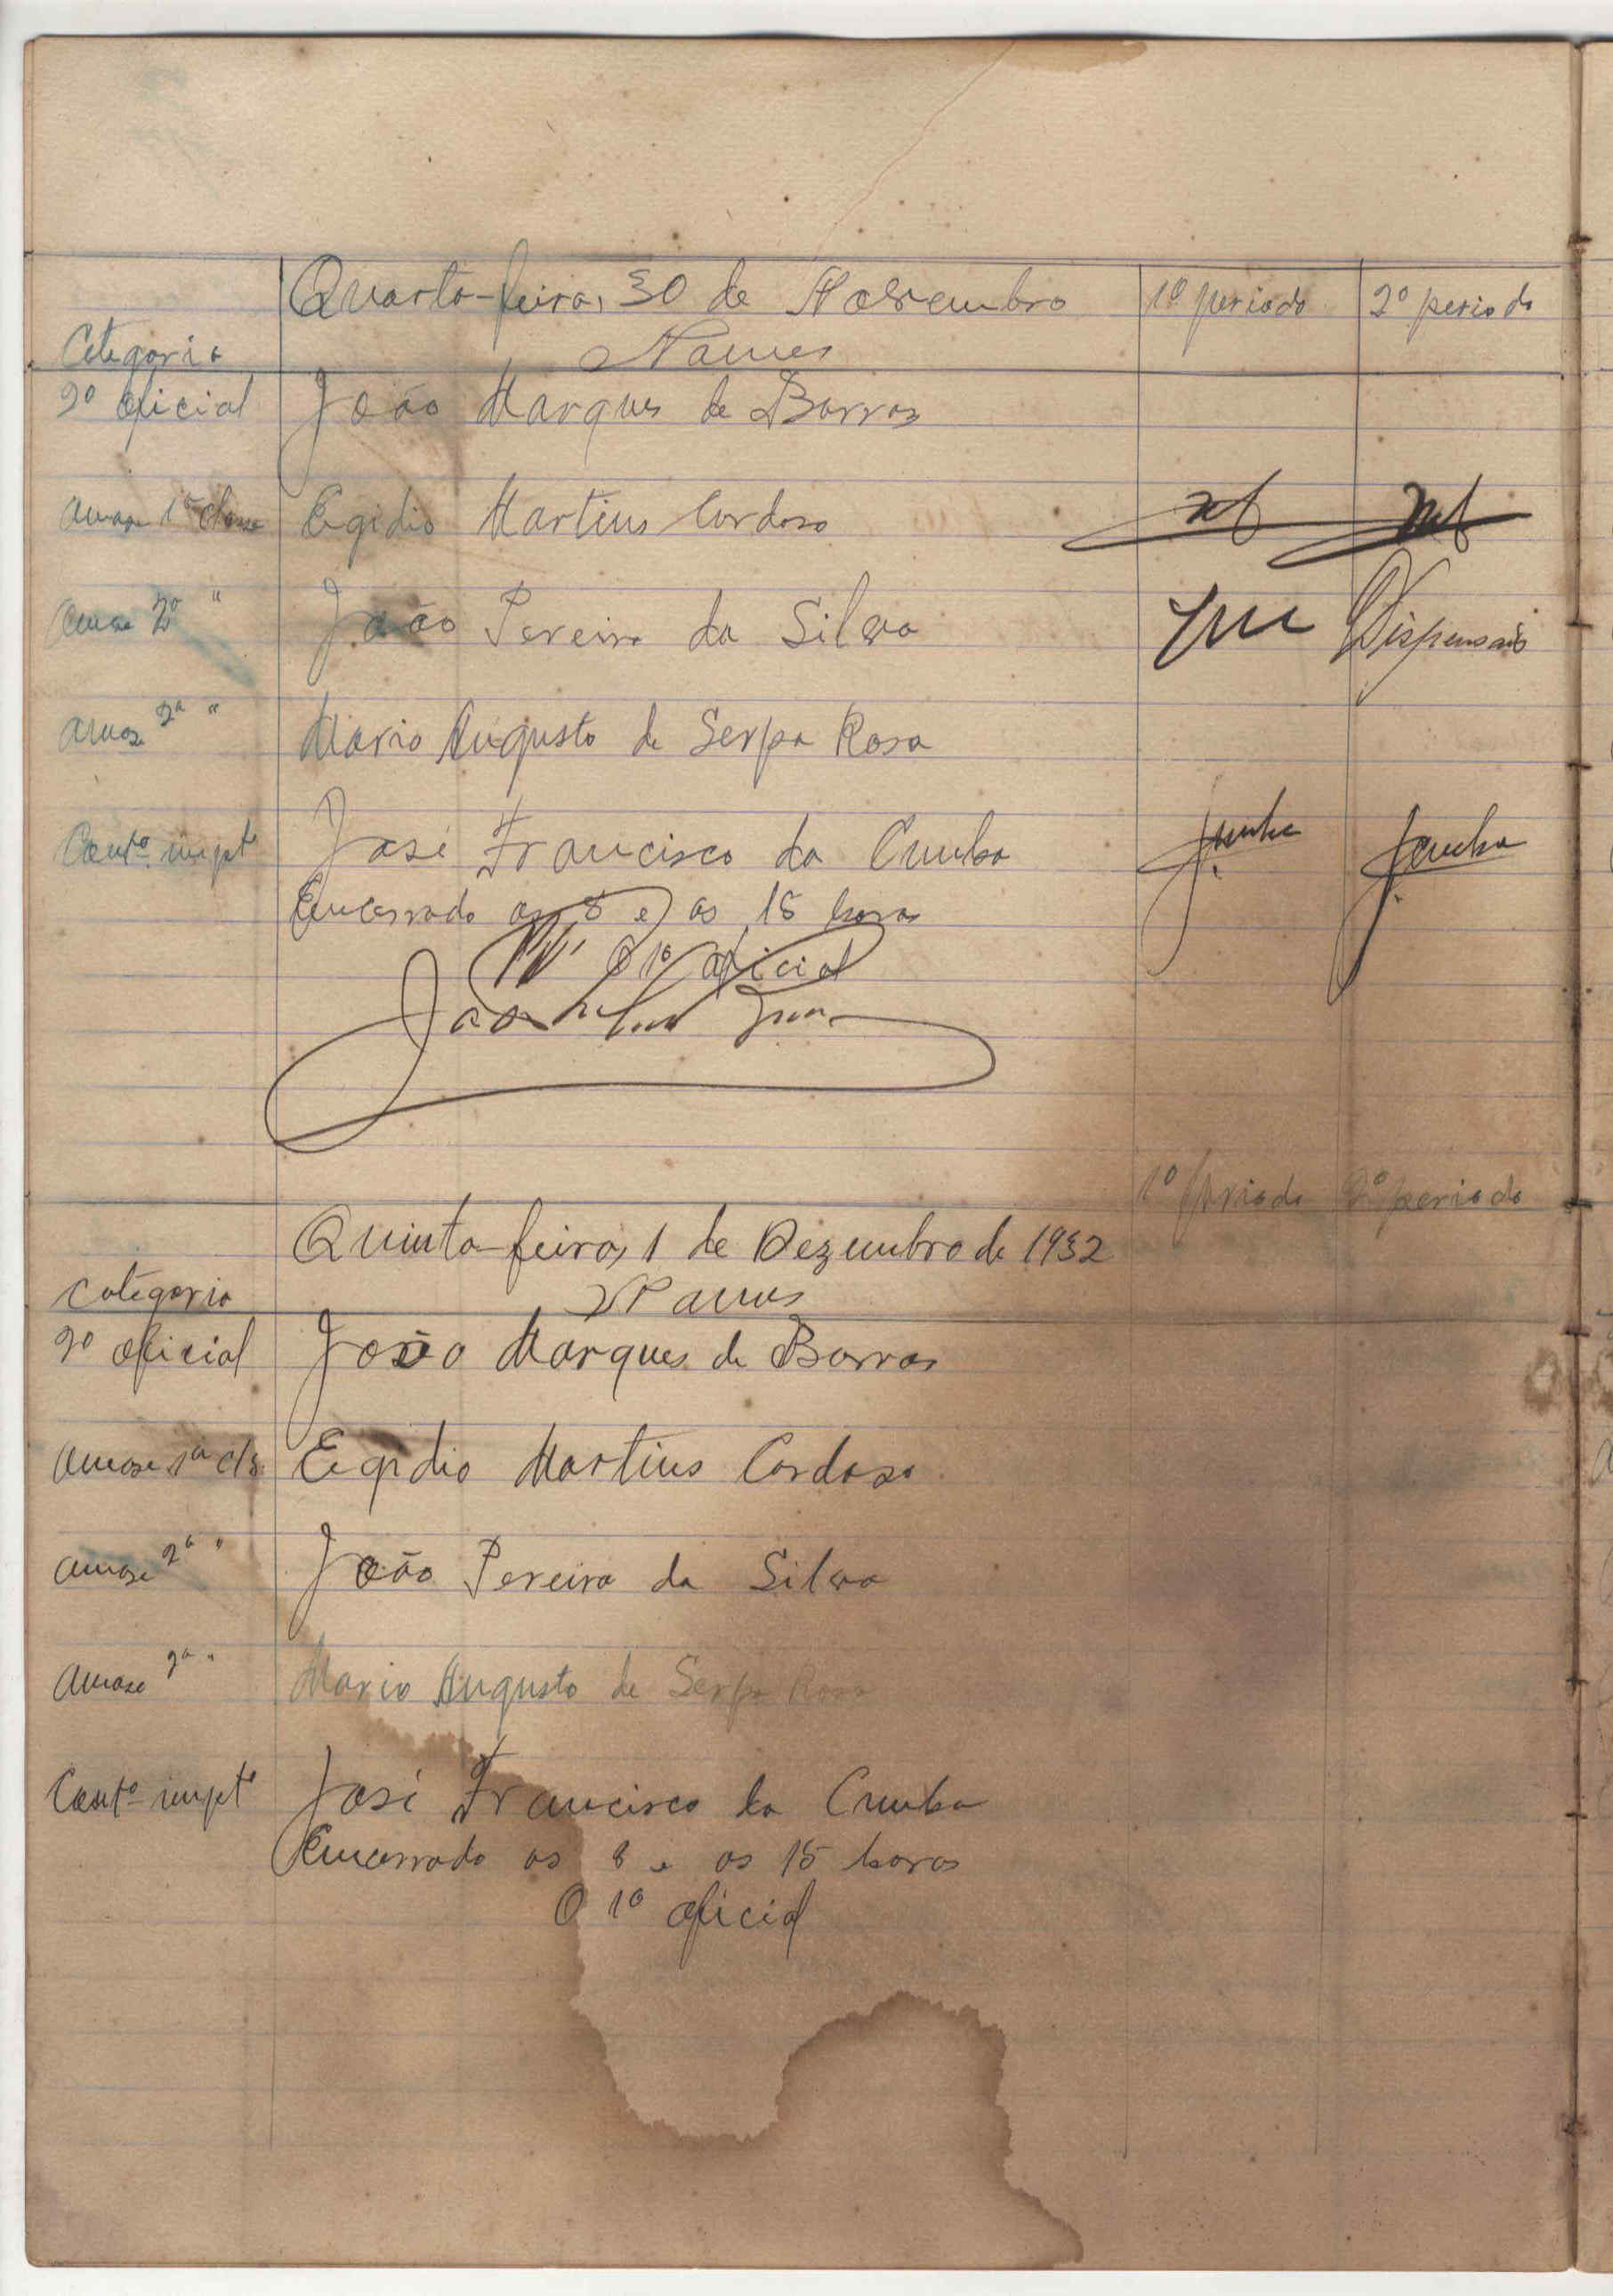 Quarta-feira, 30 de Novembro 1º periodo 2º periodo
Categoria Nomes
2º oficial João Marques de Barros
Amase 1ª classe Egidio Martins Cardoso
Amase 2ª " João Pereira da Silva Dispensado
Amase 2ª " Mario Augusto de Serpa Rosa
Contº impt º José Francisco da Cunha JCunha JCunha
Encerrado as 8 e as 15 horas
O 1º oficial
1º periodo 2º periodo
Quinta-feira, 1 de Dezembro de 1932
Categoria Nomes
2º oficial João Marques de Barros
Amase 1ª cls. Egidio Martins Cardoso
Amase 2ª " João Pereira da Silva
Amase 2ª " Mario Augusto de Serpa Rosa
Contº impt º José Francisco da Cunha
Encerrado as 8 e as 15 horas
O 1º oficial